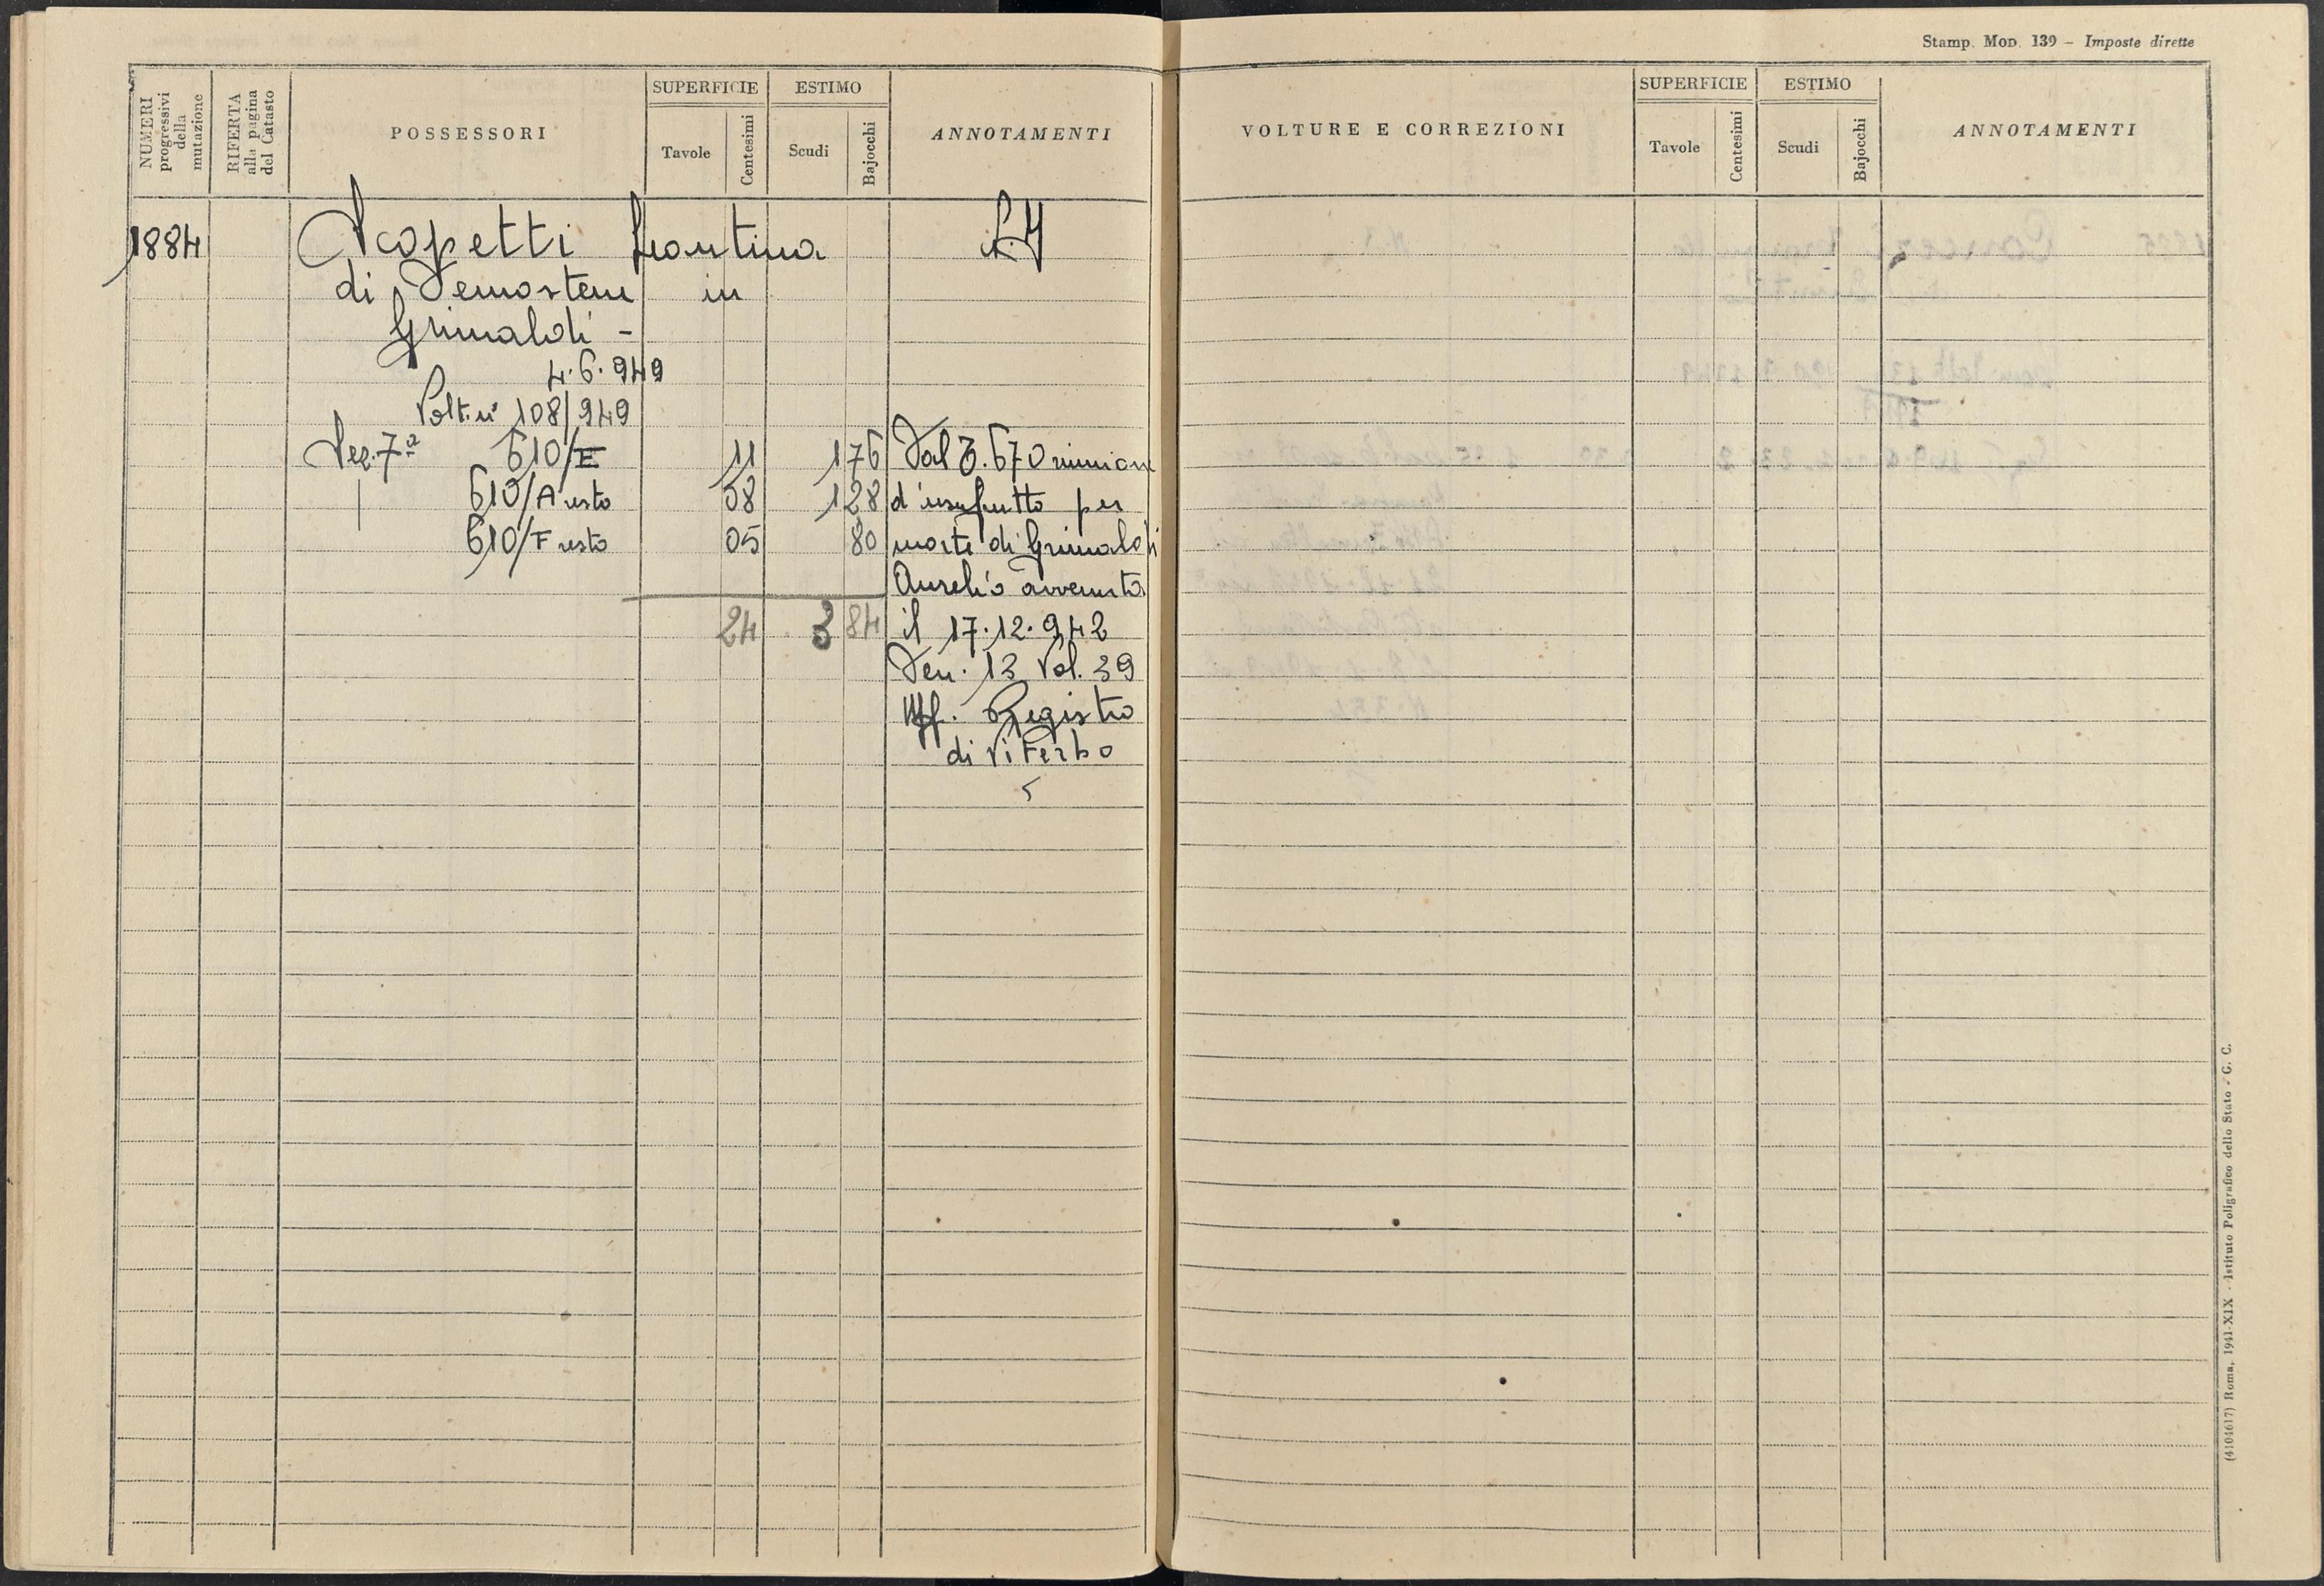 NUMERI progressivi della mutazione
RIFERTA alla pagina del Catasto
POSSESSORI
SUPERFICIE
Tavole
Centesimi
ESTIMO
Scudi
Bajocchi
ANNOTAMENTI
1884
Scopetti Leontina
di Demostene in
Grimaldi -
4.6.949
Volt. n° 108/949
Sez. 7ª 610/E 11 176
610/A resto 08 128
610/F resto 05 80
24 3 84
Dal 3.670 riunione
d'usufrutto per
morte di Grimaldi
Aurelio avvenuta
il 17.12.942
Den. 13 Vol. 39
Uff. Registro
di Viterbo
Stamp. Mod. 139 - Imposte dirette
VOLTURE E CORREZIONI
SUPERFICIE
Tavole
Centesimi
ESTIMO
Scudi
Bajocchi
ANNOTAMENTI
(4104617) Roma, 1941-XIX - Istituto Poligrafico dello Stato - G. C.